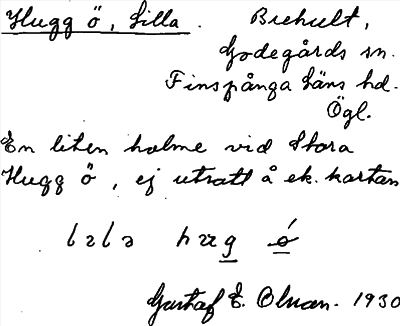 Hugg ö, Lilla. Biehult,
Godegårds sn.
Finspånga läns hd.
Ögl.
En liten holme vid Stora
Hugg ö, ej utsatt å ek. kartan
Gustaf E. Olsson. 1930